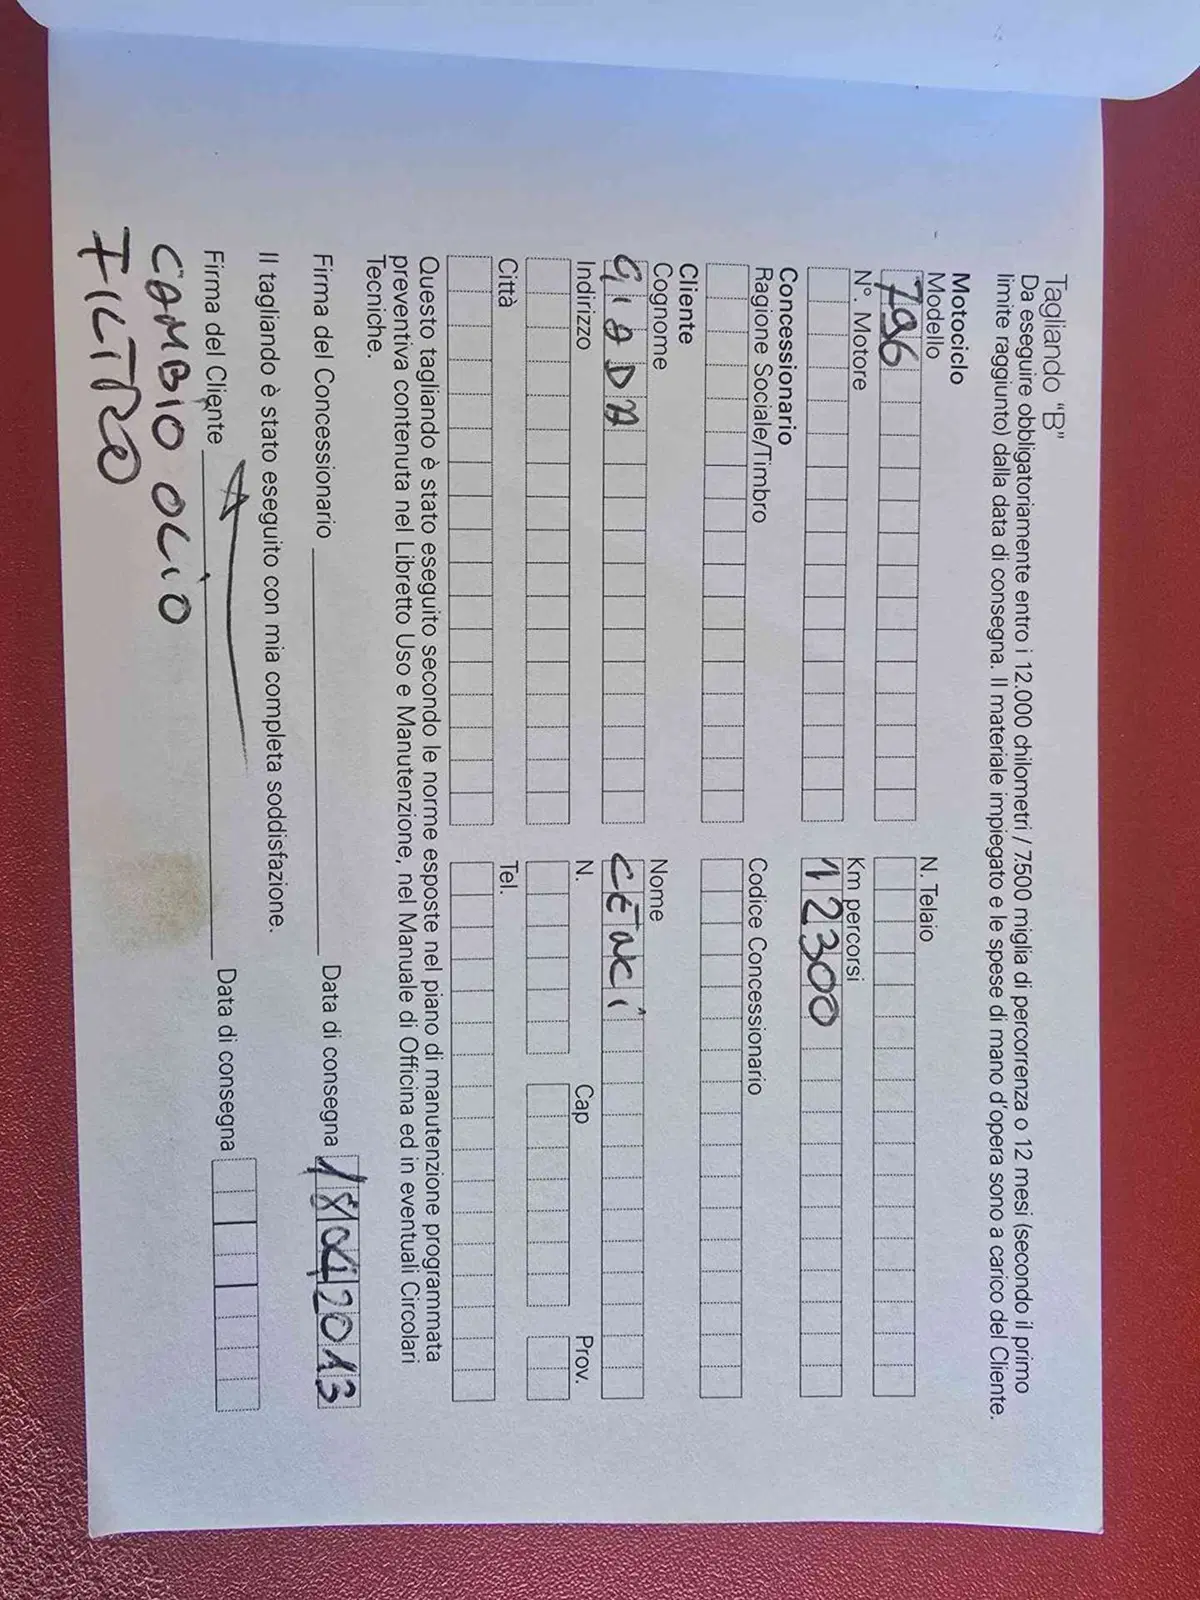 Tagliando "B"
Da eseguire obbligatoriamente entro i 12.000 chilometri / 7.500 miglia di percorrenza o 12 mesi (secondo il primo
limite raggiunto) dalla data di consegna. Il materiale impiegato e le spese di mano d'opera sono a carico del Cliente.
Motociclo
Modello N. Telaio
796
N°. Motore Km percorsi
12300
Concessionario
Ragione Sociale/Timbro Codice Concessionario
Cliente
Cognome Nome
GIADA CENCI
Indirizzo N. Cap Prov.
Città Tel.
Questo tagliando è stato eseguito secondo le norme esposte nel piano di manutenzione programmata
preventiva contenuta nel Libretto Uso e Manutenzione, nel Manuale di Officina ed in eventuali Circolari
Tecniche.
Firma del Concessionario Data di consegna 18042013
Il tagliando è stato eseguito con mia completa soddisfazione.
Firma del Cliente Data di consegna
CAMBIO OLIO
FILTRO